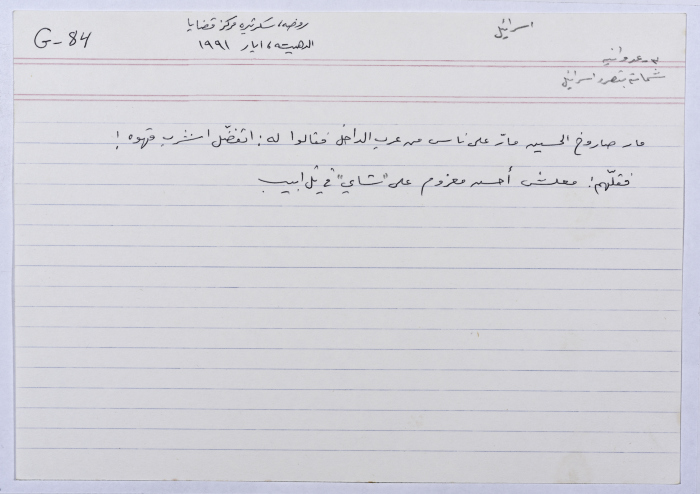 G-84
روضه، سكرتيره مركز قضايا
الدهيشه، ايار ١٩٩١
اسرائيل
٣- عدوانيه
شماته بتضرر اسرائيل
مار صاروخ الحسين مارّ على ناس من عرب الداخل فقالوا له: اتفضّل اشرب قهوه!
فقلّهم: معلش أحسن معزوم على "شاي" في تل ابيب